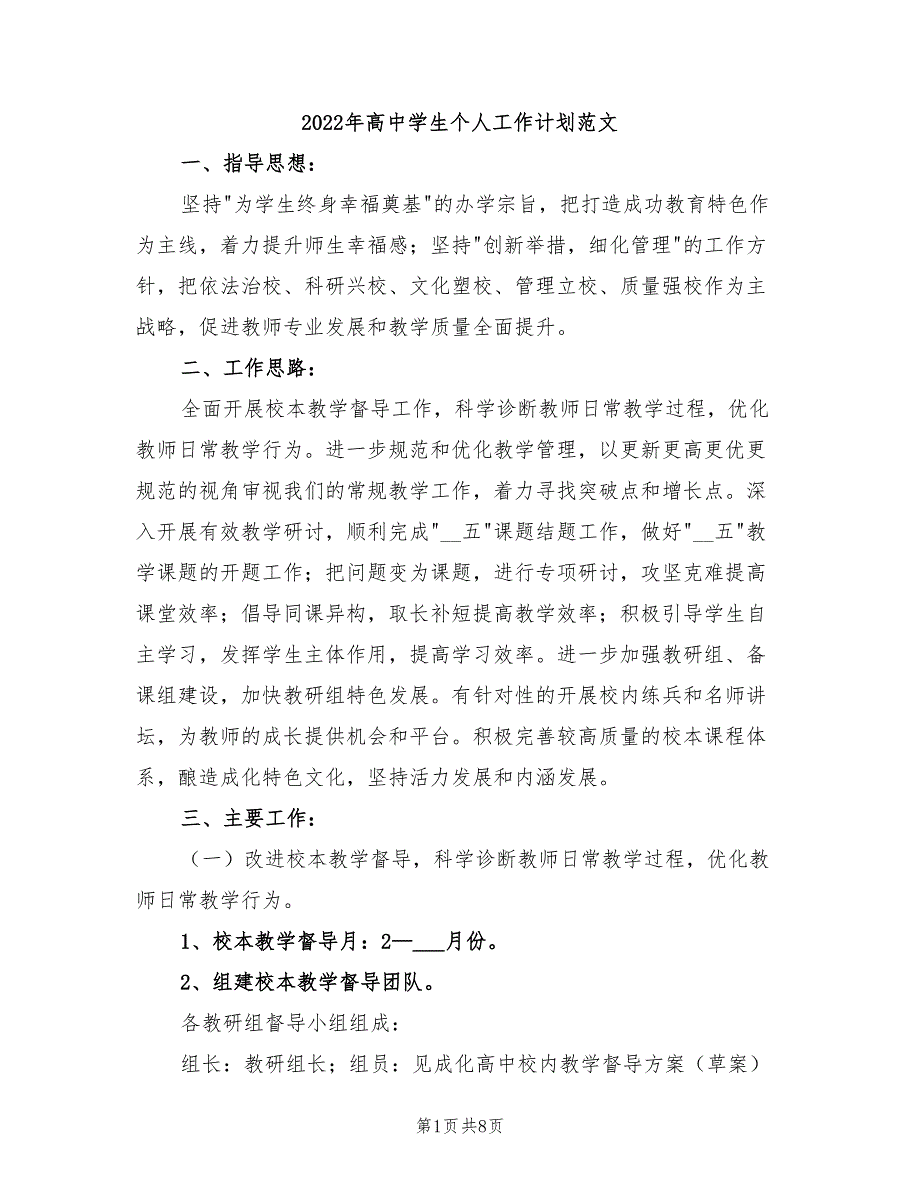 2022年高中学生个人工作计划范文
一、指导思想：
坚持"为学生终身幸福奠基"的办学宗旨，把打造成功教育特色作
为主线，着力提升师生幸福感；坚持"创新举措，细化管理"的工作方
针，把依法治校、科研兴校、文化塑校、管理立校、质量强校作为主
战略，促进教师专业发展和教学质量全面提升。
二、工作思路：
全面开展校本教学督导工作，科学诊断教师日常教学过程，优化
教师日常教学行为。进一步规范和优化教学管理，以更新更高更优更
规范的视角审视我们的常规教学工作，着力寻找突破点和增长点。深
入开展有效教学研讨，顺利完成"__五"课题结题工作，做好"__五"教
学课题的开题工作；把问题变为课题，进行专项研讨，攻坚克难提高
课堂效率；倡导同课异构，取长补短提高教学效率；积极引导学生自
主学习，发挥学生主体作用，提高学习效率。进一步加强教研组、备
课组建设，加快教研组特色发展。有针对性的开展校内练兵和名师讲
坛，为教师的成长提供机会和平台。积极完善较高质量的校本课程体
系，酿造成化特色文化，坚持活力发展和内涵发展。
三、主要工作：
（一）改进校本教学督导，科学诊断教师日常教学过程，优化教
师日常教学行为。
1、校本教学督导月：2—___月份。
2、组建校本教学督导团队。
各教研组督导小组组成：
组长：教研组长；组员：见成化高中校内教学督导方案（草案）
第1页共8页